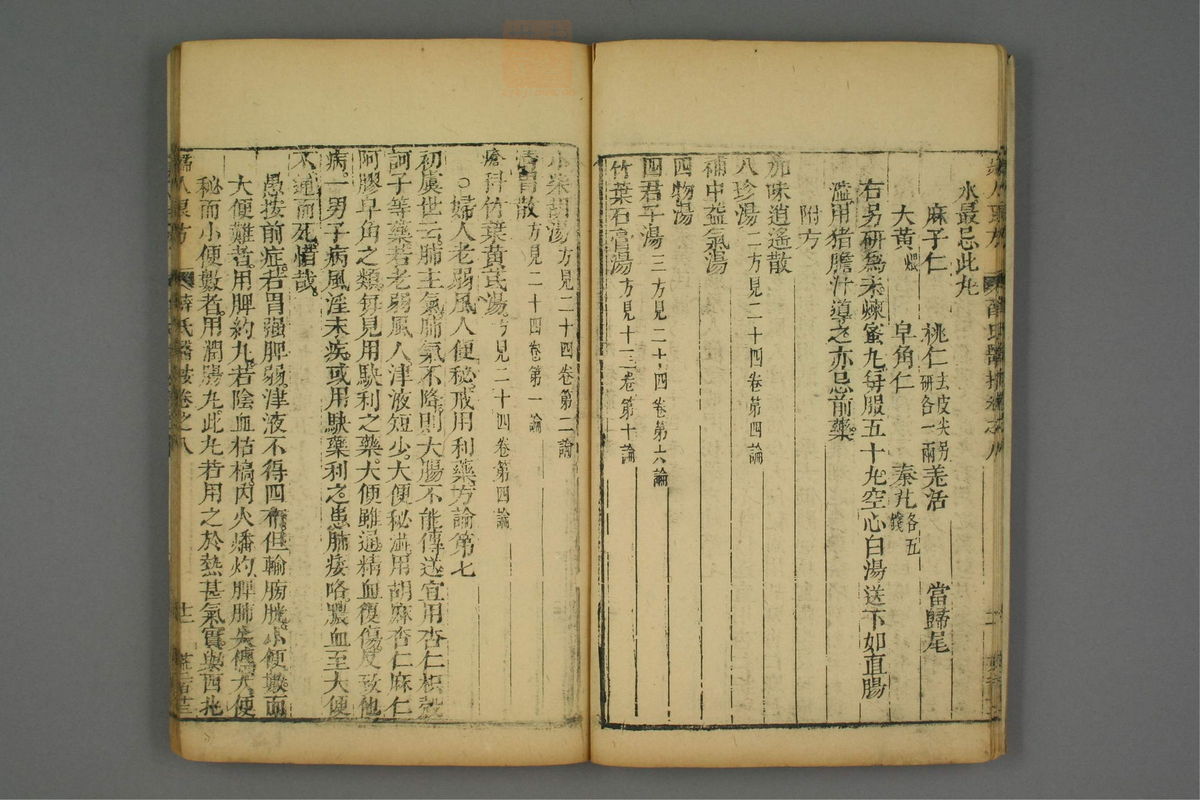 水最忌此丸
麻子仁 桃仁去皮尖另研各一兩 羗活 當歸尾
大黃煨 皁角仁 秦艽各五錢
右另研為末煉蜜丸每服五十丸空心白湯送下如直腸
濫用猪膽汁導之亦忌前藥
附方
加味逍遙散
八珍湯二方見二十四卷第四論
補中益氣湯
四物湯
四君子湯三方見二十四卷第六論
竹葉石膏湯方見十三卷第十論
小柴胡湯方見二十四卷第二論
清胃散方見二十四卷第一論
瘡科竹葉黃芪湯方見二十四卷第四論
○婦人老弱風人便秘戒用利藥方論第七
初虞世云肺主氣肺氣不降則大腸不能傳送宜用杏仁枳殼
訶子等藥若老弱風人津液短少大便秘澁用胡麻杏仁麻仁
阿膠皁角之類每見用駃利之藥大便雖通精血復傷反致他
病一男子病風淫末疾或用駃藥利之患肺痿咯膿血至大便
不通而死惜哉
愚按前症若胃强脾弱津液不得四布但輸膀胱小便數而
大便難者用脾約丸若陰血枯槁內火燔灼脾肺失傳大便
秘而小便數者用潤腸丸此丸若用之於熱甚氣實與西北
婦人良方 薛氏醫按卷之八 十二